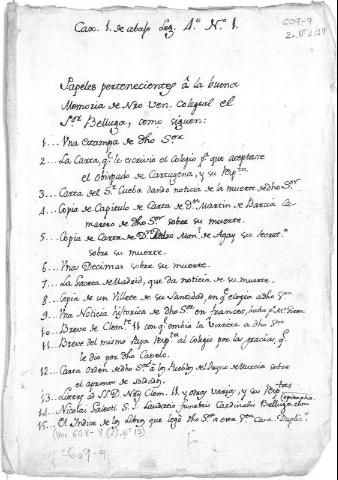 Cax. 1. de abajo Leg. 4.º N.º 1.
609-9
Papeles pertenecientes â la buena
Memoria de Nrõ Ven. Colegial el
S.or Belluga, como siguen:
1... Vna Estampa de dho S.or
2... La Carta, q.e le escrivio el Colegio p.a que aceptase
el Obispado de Cartagena, y su Resp.ta
3... Carta del S.r Cueba dando noticia de la muerte de dho S.or
4... Copia de Capitulo de Carta de D.n Martin de Barcia Ca-
marero de dho S.or sobre su muerte.
5... Copia de Carta de D.n Pedro Man.l de Agay su Secret.o
sobre su muerte.
6... Vnas Decimas sobre su muerte.
7... La Gaceta de Madrid, que da noticia de su muerte.
8... Copia de un Villete de su Santidad, en q.e elogia a dho S.or
9... Vna Noticia historica de dho S.or en frances, hecha p.r M.r
10... Breve de Clem.te 11 con q.e embia la Barreta a dho S.or
11... Breve del mismo Papa al Colegio por las gracias, q.e
le dio por dho Capelo.
12... Carta orden de dho S.or a los Pueblos del Reyno de Murcia sobre
el apremio de soldados.
13... Literæ ad SS. D. Nrũ Clem. 11. y otros varios, y su Resp.tas
14... Nicolai Galeoti S. I. Laudatio funebris Cardinalis Belluga, cum epitaphio.
15... El Indice de los Libros que legó dho S.or a esta S.ta Casa. Duplic.o
(Ver 609-9 (2), Nº 15)
609-9